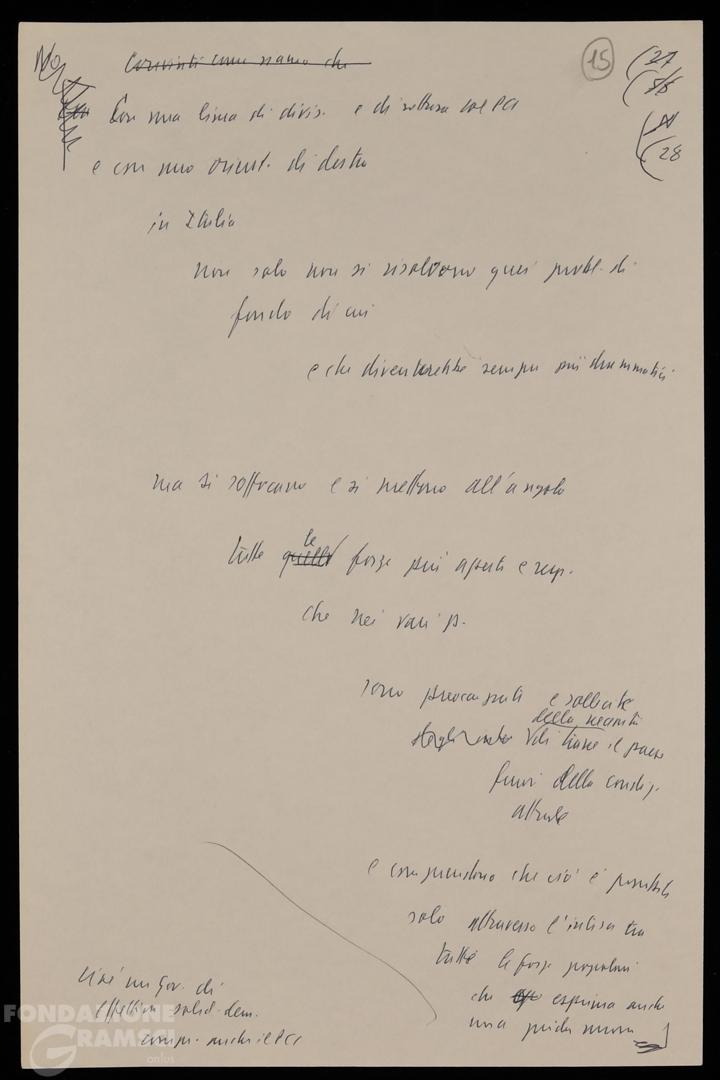 15
27
28
Convinti come siamo che
Con una linea di divis. e di rottura col PCI
e con uno orient. di destra
in Italia
non solo non si risolvono quei probl. di
fondo di cui
e che diventerebbe sempre più drammatici
ma si soffocano e si mettono all'angolo
tutte quelle le forze più aperte e resp.
che nei vari p.
sono preoccupati e sollecite
della necessità
di tirare il paese
fuori della condiz.
attuale
e comprendono che ciò è possibile
solo attraverso l'intesa tra
tutte le forze popolari
che esprima anche
una guida nuova
Cioè un gov. di
effettiva solid. dem.
compr. anche il PCI
FONDAZIONE
GRAMSCI
onlus